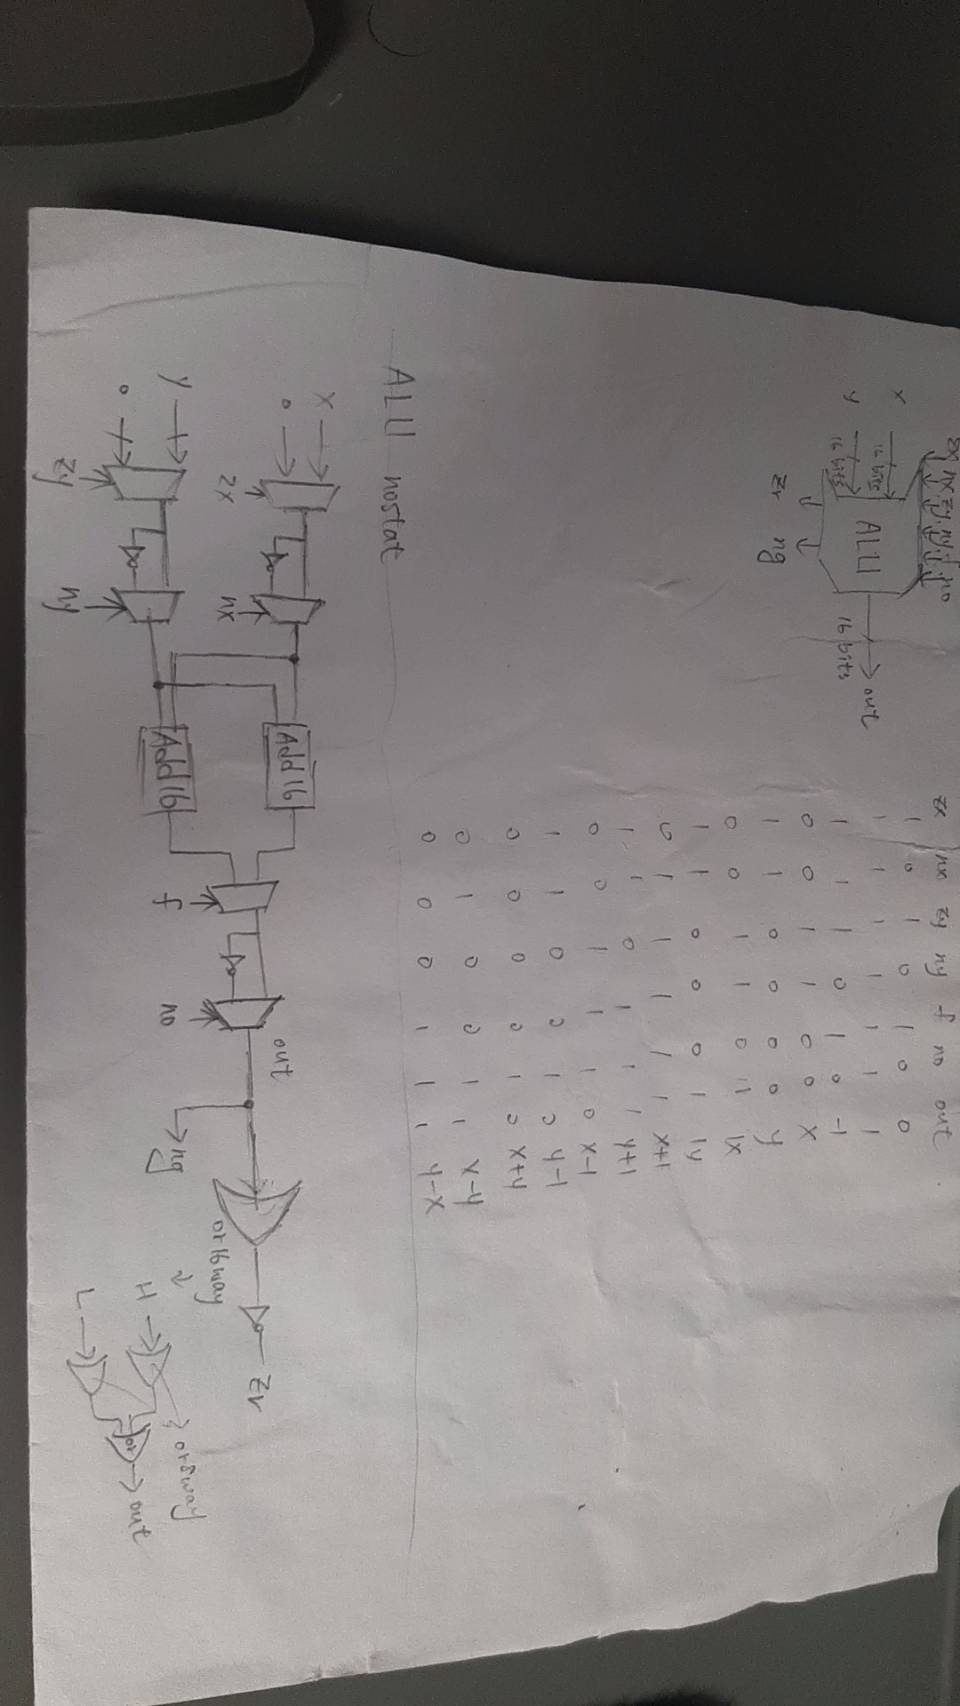 zx nx zy ny f no
x 16 bits
y 16 bits
ALU
16 bits
out
zr ng
zx nx zy ny f no out
1 0 1 0 1 0 0
1 1 1 1 1 1 1
1 1 1 0 1 0 -1
0 0 1 1 0 0 x
1 1 0 0 0 0 y
0 0 1 1 0 1 !x
1 1 0 0 0 1 !y
0 1 1 1 1 1 x+1
1 1 0 1 1 1 y+1
0 0 1 1 1 0 x-1
1 1 0 0 1 0 y-1
0 0 0 0 1 0 x+y
0 1 0 0 1 1 x-y
0 0 0 1 1 1 y-x
ALU nostat
x
0
zx
nx
Add16
y
0
zy
ny
Add16
f
no
out
ng
or16way
zr
H
L
or8way
or
out